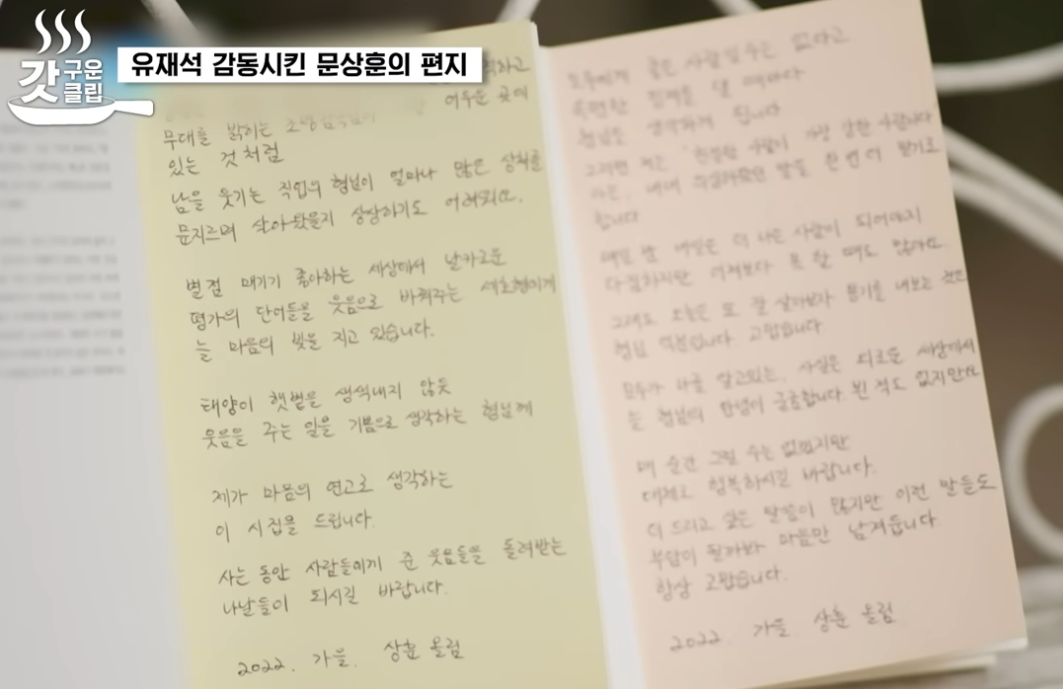 갓
구운
클립
유재석 감동시킨 문상훈의 편지
어두운 곳에
무대를 밝히는 조명
있는 것처럼
남을 웃기는 직업의 형님이 얼마나 많은 상처를
문지르며 살아왔을지 상상하기도 어려워요.
별점 매기기 좋아하는 세상에서 날카로운
평가의 단어들을 웃음으로 바꿔주는
는 마음의 빚을 지고 있습니다.
태양이 햇볕을 생색내지 않듯
웃음을 주는 일을 기쁨으로 생각하는 형님께
제가 마음의 연고로 생각하는
이 시집을 드립니다.
사는 동안 사람들에게 준 웃음들을 돌려받는
나날들이 되시길 바랍니다.
2022. 가을. 상훈 올림
모두에게 좋은 사람일 수는 없다고
한계를 댈 때마다
형님을 생각하게 됩니다
그러면 저는 친절한 사람이 가장 강한 사람이다
라는, 내내 의심해왔던 말을 한 번 더 믿기로
합니다
매일 밤 내일은 더 나은 사람이 되어야지
다짐하지만 어제보다 못 할 때도 많아요.
그래도 오늘은 또 잘 살아보자 용기를 내보는 것은
형님 덕분입니다. 고맙습니다
모두가 나를 알고있는, 사실은 외로운 세상에서
는 형님의 안녕이 궁금합니다. 뵌 적도 없지만요
매 순간 그럴 수는 없겠지만
대체로 행복하시길 바랍니다.
더 드리고 싶은 말씀이 많지만 이런 말들도
부담이 될까봐 마음만 남겨둡니다.
항상 고맙습니다.
2022. 가을 상훈 올림